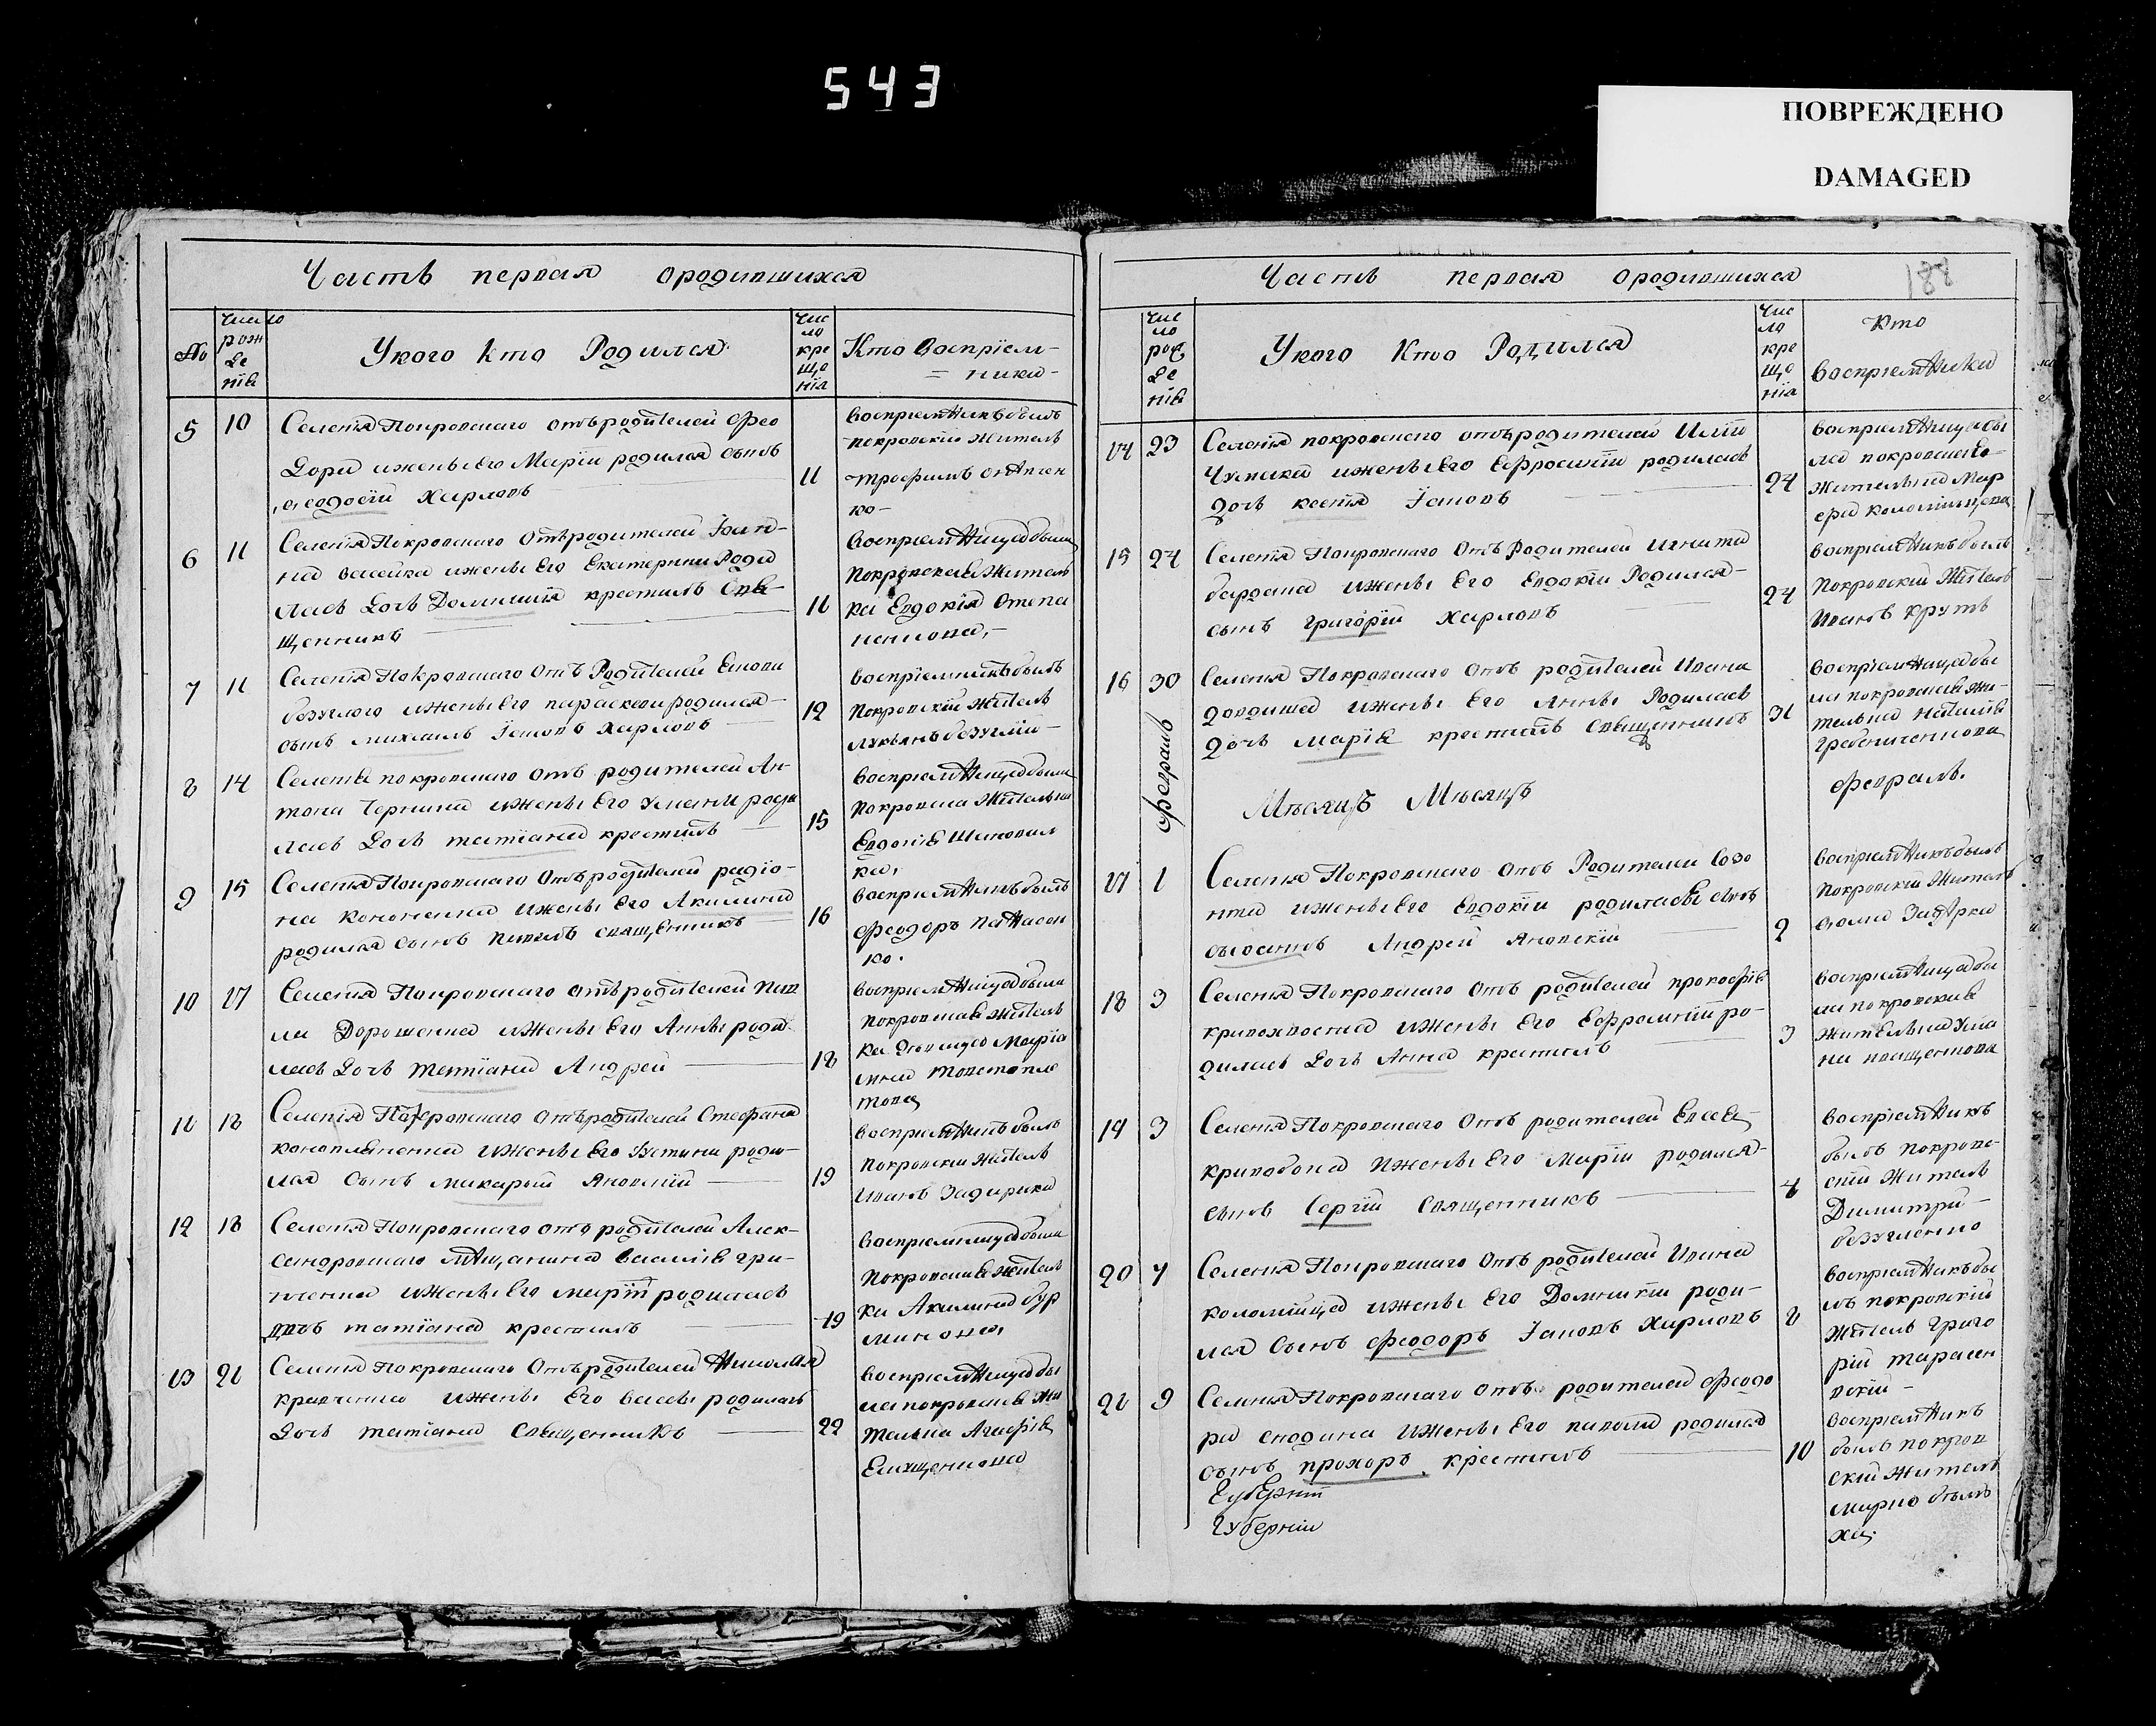 543
ПОВРЕЖДЕНО
DAMAGED
Часть первая ородившихся
№
Число рожденїя
Укого кто Родился
Число крещенїя
Кто Воспрїемники
5 10
Селенїя Покровского отъ родителей Фео
дора ижены Его Марїи родился сынъ
Ѳеодосїй Харловъ
11
воспрїемникъ былъ
покровскїй житель
трофимъ
ко
6 11
Селенїя Покровского Отъ родителей Їоан
на ижены Его Екатерины Роди
лась Дочь крестилъ Свя
щенникъ
11
Воспрїемницею была
покровская житель
ка Евдокїя Степа
ненкова
7 11
Селенїя Покровского Отъ Родителей
безуглого ижены Его параскеви родился
сынъ михаилъ Їаковъ Харловъ
12
воспрїемникъ былъ
покровскїй житель
лукьянъ безуглїй
8 14
Селенїя покровского отъ родителей Ан
тона Черкина ижены Его роди
лась Дочь татїана крестилъ
15
воспрїемницею была
покровска жителька
Евдокїя Шаповал
ка
9 15
Селенїя Покровского Отъ родителей радїо
на кононенка ижены Его Акилины
родился Сынъ павелъ священникъ
16
воспрїемникъ былъ
феодоръ
ко
10 17
Селенїя Покровского отъ родителей Пав
ла Дорошенка ижены Его Анны роди
лась Дочь татїана Андрей
18
воспрїемницею была
покровская житель
ка
11 18
Селенїя Покровского отъ родителей Стефана
конопляненка ижены Его Устины роди
лся Сынъ макарїй Яновскїй
19
воспрїемникъ былъ
Покровскїй житель
Иванъ Задирака
12 18
Селенїя Покровского отъ родителей Алек
сандровского мѣщанина василїя гри
ченка ижены Его марїи родилась
дочь татїана крестилъ
19
воспрїемницею была
Покровская житель
ка Акилина бур
макова
13 21
Селенїя Покровского Отъ родителей Николая
кравченка ижены Его вассы родилась
Дочь татїана Священникъ
22
воспрїемницею бы
ла покровская жи
телька Агафїя
Емященкова
Часть первая ородившихся
188
Число рожденїя
Укого Кто Родился
Число крещенїя
Кто воспрїемники
14 23
Селенїя покровского отъ родителей Илїи
Чумака ижены Его Ефросинїи родилась
Дочь ксенїя Їаковъ
24
воспрїемницею бы
ла покровская
жителька Мар
фа коломїйцова
15 24
Селенїя Покровского Отъ Родителей Игната
бардака ижены Его Евдокїи Родился
сынъ григорїй Харловъ
24
воспрїемникъ былъ
Покровскїй житель
Иванъ крутъ
16 30
Селенїя Покровского Отъ родителей Ивана
ижены Его Анны Родилась
Дочь марїя крестилъ Священникъ
31
воспрїемницею бы
ла покровская жи
телька наталїя
гребениченкова
февраль
Мѣсяцъ Мѣсяцъ
февраль.
17 1
Селенїя Покровского отъ Родителей Созо
нта ижены Его Евдокїи родился сынъ
Андрей Яновскїй
2
воспрїемникъ былъ
Покровскїй житель
ѳома
18 3
Селенїя Покровского Отъ родителей прокофїя
кривохвоста ижены Его Ефросинїи ро
дилась Дочь Анна крестилъ
3
воспрїемницею бы
ла покровская
жителька Улїа
на иващенкова
19 3
Селенїя Покровского Отъ родителей Елсея
кривобока ижены Его марїи родился
сынъ Сергїй Священникъ
4
воспрїемникъ
былъ покровс
кїй житель
Димитрїй
безугленко
20 7
Селенїя Покровского Отъ родителей Ивана
коломїйца ижены Его Домникїи роди
лся Сынъ феодоръ Їаковъ Харловъ
8
воспрїемникъ бы
лъ покровскїй
житель Григо
рїй тарасен
21 9
Селенїя Покровского отъ родителей феодо
ра ижены Его родился
сынъ прохоръ крестилъ
Губернїи
Губернїи
10
воспрїемникъ
былъ покров
скїй житель
марко